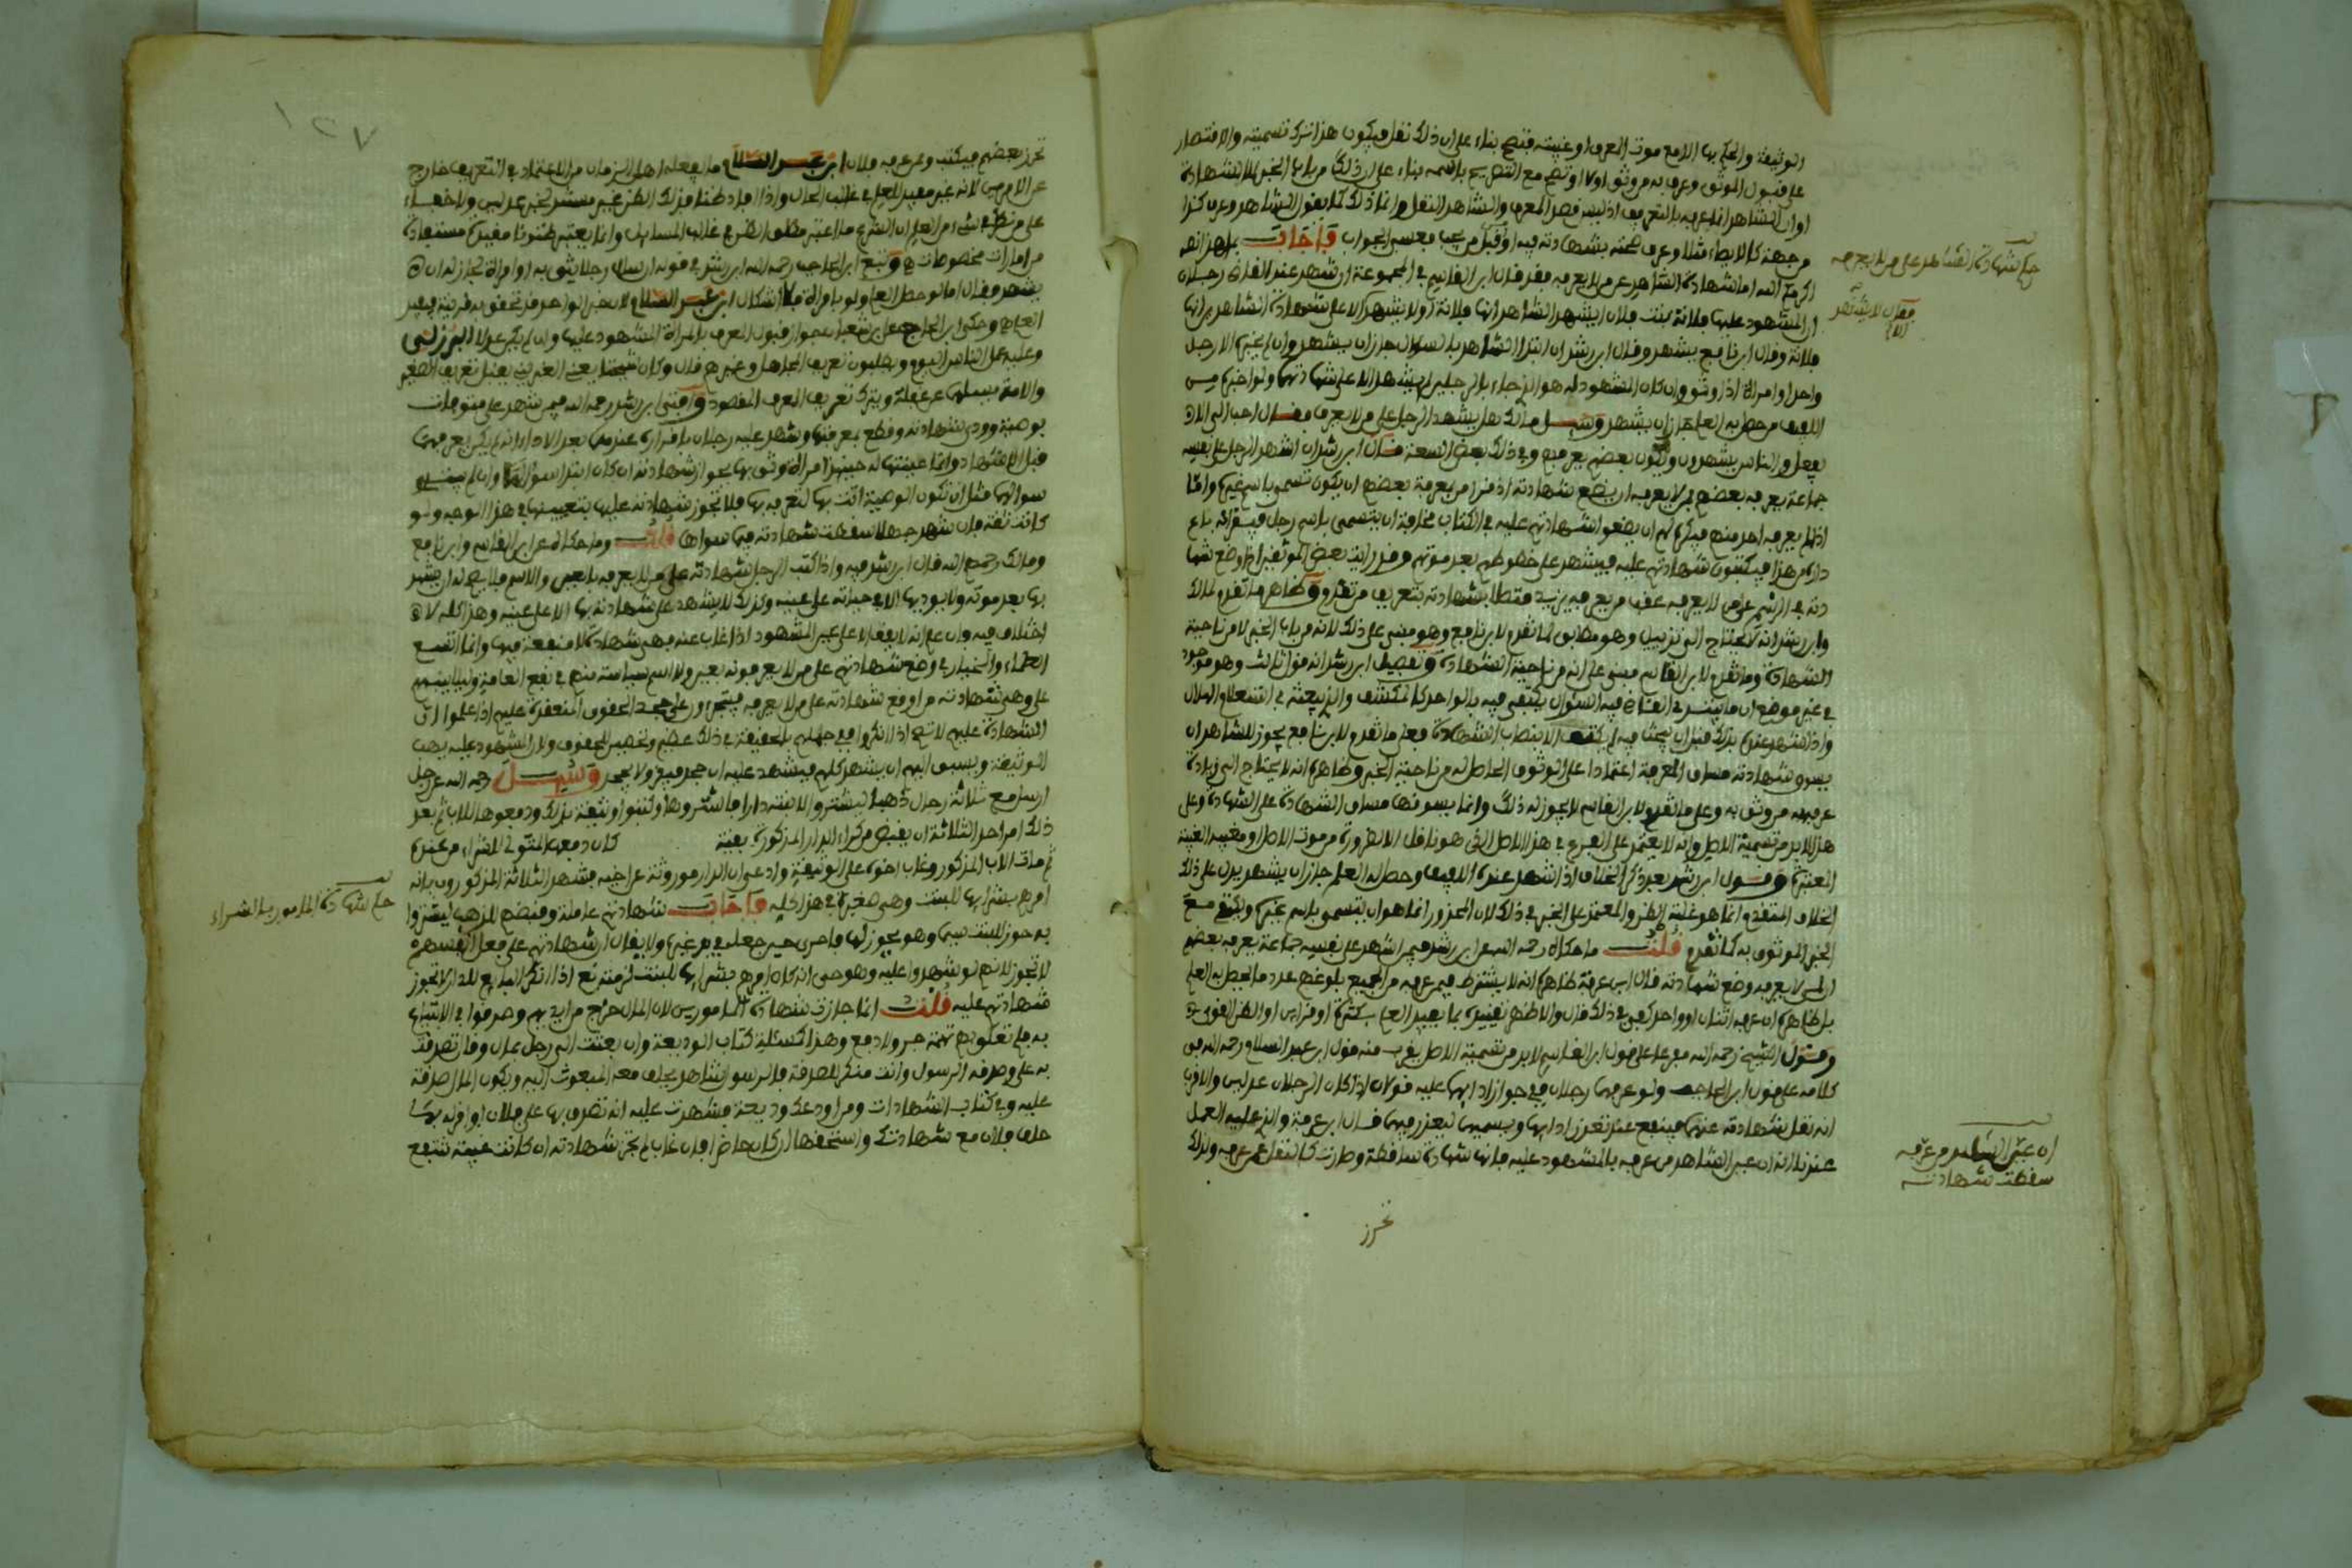 الوثيقة والحكم بها الا مع موت المعرف او غيبته فتصح بناء على ان ذلك نقل فيكون هذا ترك تسميته والاقتصار
على قبول الموثق وعرف به من وثق او لا او تصح مع التصريح باسمه بناء على ان ذلك من باب الخبر لا الشهادة
او ان الشاهد انما عرفه بالتعريف اذ ليس قصد المعرف والشاهد النقل وانما ذلك كما يقول الشاهد وعرف كذا
من جهة كالايصاء مثلا وعرف صحته بشهادته فيه او قبل من يجب بعسى الجواب فاجاب
اكرمكم الله اما شهادة الشاهد على من لا يعرفه فقد قال ابن القاسم في المجموعة ان شهد عند القاضي رجلان
ان المشهود عليها فلانة بنت فلان ايشهد الشاهد انها فلانة قال لا يشهد الا على شهادة الشاهدين انها
فلانة وقال ابن نافع يشهد وقال ابن رشد ان ابتدا الشاهد بالسؤال جاز ان يشهد وان لم يخبره الا رجل
واحد او امراة اذا وثق وان كان المشهود له هو الذي جاء بالرجلين لم يشهد الا على شهادتهما ولو اخبره من
اللفيف من حصل به العلم جاز ان يشهد وسيل مالك هل يشهد الرجل على من لا يعرف فقال احب الي الا
يفعل والناس يشهدون ويكون بعضهم يعرفهم وفي ذلك بعض السعة قال ابن رشد ان اشهد الرجل على نفسه
جماعة يعرفه بعضهم فلمن لا يعرفه ان يضع شهادته اذ قد امن بمعرفة بعضهم ان يكون تسمى باسم غيره واما
اذا لم يعرفه احد منهم فيكره لهم ان يضعوا شهادتهم عليه في الكتاب مخافة ان يتسمى باسم رجل فيقر انه باع
داره من هذا فيكتبون شهادتهم عليه فيشهد على خطوطهم بعد موتهم وقد رايت بعض الموثقين اذا وضع شها
دته في الرسم على من لا يعرفه عقب من يعرفه يزيد متصلا بشهادته بتعريف من تقدم وظاهر ما تقدم لمالك
وابن رشد انه لا يحتاج الى تزييل وهو مطابق لما تقدم لابن نافع وهو مبني على ذلك لانه من باب الخبر لا من ناحية
الشهادة وما تقدم لابن القاسم مبني على انه من ناحية الشهادة وتفصيل ابن رشد انه قول ثالث وهو موجود
في غير موضع ان ما يبتدي القاضي فيه السؤال يكتفي فيه بالواحد كالمكشف والذي يبعثه في استعلام الهلال
واذا شهد عنده بذلك قبل ان يبحث فيه لم يكتف الا بنصاب الشهادة فعلى ما تقدم لابن نافع يجوز للشاهد ان
يسوق شهادته مساق المعرفة اعتمادا على الوثوق الحاصل له من ناحية الخبر وظاهره انه لا يحتاج الى زيادة
عرفه به من وثق به وعلى ما تقدم لابن القاسم لا يجوز له ذلك وانما يسوقها مساق الشهادة على الشهادة وعلى
هذا لا بد من تسمية الاصل وانه لا يعتمد على الفرع في هذا الاصل الذي هو ناقل الا لضرورة من موت الاصل او مغيبه الغيبة
المعتبرة وقول ابن رشد بعد ذكر الخلاف اذا شهد عنده اللفيف وحصل له العلم جاز ان يشهد يدل على ذلك
الخلاف المتقدم انما هو غلبة الظن والمعتمد على الخبر في ذلك لان المحذور انما هو ان يتسمى باسم غيره ويكتفى مع
الخبر الموثوق به كما تقدم قلت ما حكاه رحمه الله عن ابن رشد فيمن اشهد على نفسه جماعة يعرفه بعضهم
ان لمن لا يعرفه وضع شهادته قال ابن عرفة ظاهره انه لا يشترط فيمن عرفه من الجميع بلوغهم عدد ما يحصل به العلم
بل ظاهره ان عرفه اثنان او واحد كفى في ذلك قال والاظهر تقييده بما يفيد العلم بكثرة او قراين او الظن القوي
وقول الشيخ رحمه الله مفرعا على قول ابن القاسم لا بد من تسمية الاصل يقرب منه قول ابن عبد السلام رحمه الله في
كلامه على قول ابن الحاجب ولو عرفها رجلان ففي جواز ادايها عليه قولان اذا كان الرجلان عدلين والاقرب
انه نقل شهادته عنهما فيمنع عند تعذر ادايها ويسميهما ليعذر فيهما قال ابن عرفة والذي عليه العمل
عندنا انه ان عين الشاهد من عرفه بالمشهود عليه فانها شهادة ساقطة وصارت كالنقل عمن عرفه ولذلك
تحرز
حكم شهادة الشاهد على من لا يعرفه
فقال لا يشهد الا
ان عين الشاهد من عرفه
سقطت شهادته
١٢٧
تحرز بعضهم فيكتب وممن عرفه فلان ابن عبد السلام ما يفعله اهل الزمان من الاعتماد في التعريف خارج
عن الامرين لانه غير مفيد للعلم في غالب الحال واذا افاد ظنا فذلك الظن غير مستند لخبر عدلين ولا خفاء
على من نظر في شيء من العلم ان الشرع ما اعتبر مطلق الظن في غالب المسايل وانما يعتبر ظنونا مقيدة مستفادة
من امارات مخصوصات وتبع ابن الحاجب رحمه الله ابن رشد في قوله ارسال رجلا يثق به او امراة لجاز له ان
يشهد وقال اما لو حصل العلم ولو بامراة فلا اشكال ابن عبد السلام لان خبر الواحد قد تحتف به قرينة فيفيد
العلم وحكى ابن الحاج عن ابن شعبان جواز قبول المعرف بالمراة المشهود عليها وان لم يكن عدلا البرزلي
وعليه عمل الناس اليوم ويطلبون تعريف الجاهل وغيره قال وكان شيخنا يعني الغبريني يقبل تعريف الصغير
والامة يسلمها عن غفلة ويترك تعريف العرف المقصود وافتى ابن رشد رحمه الله فيمن شهد على متوفات
بوصية وودى شهادته وقطع بمعرفتها وشهد عليه رجلان باقراره عندهما بعد الاداء انه لم يكن يعرفها
قبل الاشهاد وانما عينتها له حينئذ امراة وثق بها بجواز شهادته ان كان ابتدا سؤالها وان لم يبتد
سوالها مثل ان تكون الموصية اتت بها لتعرفه بها فلا تجوز شهادته عليها بتعيينها في هذا الوجه ولو
كانت ثقة فان شهد جهلا سقطت شهادته فيما سواها قلت وما حكاه عن ابن القاسم وابن نافع
ومالك رحمهم الله قال ابن رشد فيه واذا كتب الرجل شهادته على من لا يعرفه بالعين والاسم فلا يصح له ان يشهد
بها بعد موته ولا يوديها الا في حياته على عينه وكذلك لا يشهد على شهادته بها الا على عينه وهذا كله لا
اختلاف فيه وان علم انه لا يقف الا على عين المشهود اذا غاب عنه فهي شهادة لا منفعة فيها وانما اتسع
العلماء والخيار في وضع شهادتهم على من لا يعرفونه بعين ولا اسم سياسة منهم في نفع العامة وليلا ينبههم
على وهن شهادته من اوقع شهادته على من لا يعرفه فيتجرؤون على جحد الحقوق المنعقدة عليهم اذا علموا ان
الشهادة عليهم لا تصح اذا انكروا ففي جهلهم بالحقيقة في ذلك عضم وتحصين للحقوق ولان المشهود عليه يهب
الوثيقة ويسبق اليهم ان يشهد كلهم فيشهد عليه ان جحد فيقر ولا يجحد وسيل رحمه الله عن رجل
ارسل مع ثلاثة رجال ذهبا ليشتروا لابنته دارا فاشتروها وكتبوا وثيقة بذلك ودفعوها للاب ثم بعد
ذلك امر احد الثلاثة ان يقبض من كراء الدار المذكورة بقية كان دفعها المتولي للشراء من عنده
ثم مات الاب المذكور وغاب اخوه على الوثيقة وادعى ان الدار موروثة عن اخيه فشهد الثلاثة المذكورون بانه
امرهم بشرايها للبنت وهي صغيرة في هذا كله فاجاب شهادتهم عاملة وقبضهم للذهب ليشتروا
به حوز للبنت بين وهو يجوز لها فاحرى حين جعله في يد غيره ولا يقال ان شهادتهم على فعل انفسهم
لا تجوز لانهم لو شهدوا عليه وهو حي انه كان امرهم بشرايها للبنت لزمته نعم اذا انكر البايع للدار لا تجوز
شهادتهم عليه قلت انما جازت شهادة المامورين لان المال خرج من ايديهم وصرفوا في الابتياع
به فلم تعلق بهم تهمة جر ولا دفع وهذا كمسئلة كتاب الوديعة وان بعثت الى رجل بمال وقال تصدقت
به علي وصدقه الرسول وانت منكر للصدقة فالرسول شاهد يحلف معه المبعوث اليه ويكون المال صدقة
عليه وفي كتاب الشهادات ومن اودعك وديعة فشهدت عليه انه تصدق بها على فلان او اقر له بها
حلف فلان مع شهادتك واستحقها ان كان حاضرا فان غاب لم تجز شهادته ان كانت غيبته تنتفع
حكم شهادة المامورين بالشراء